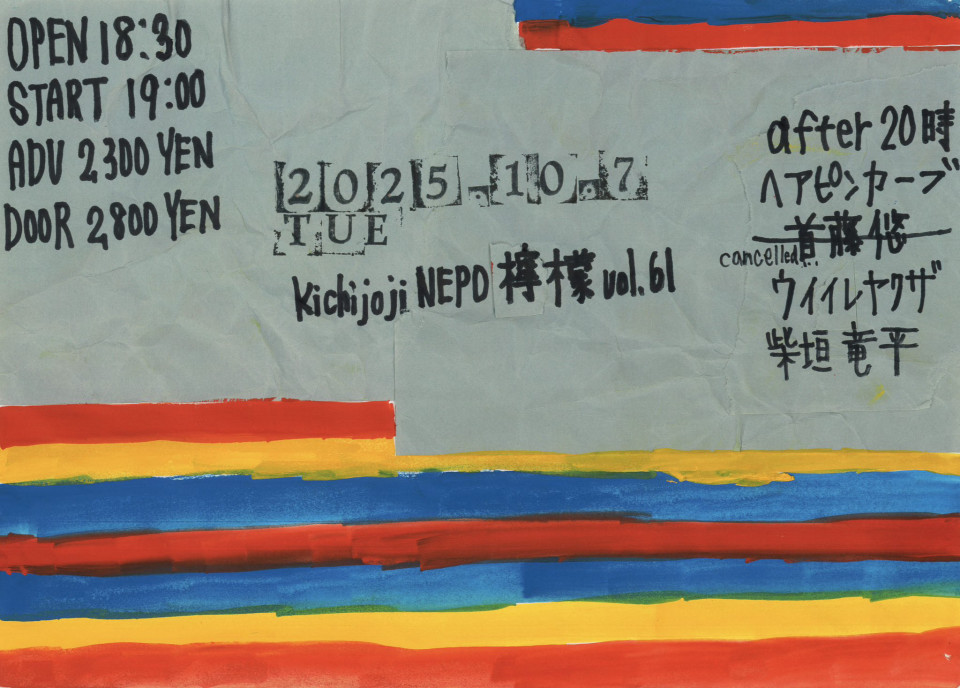 OPEN 18:30
START 19:00
ADV 2,300 YEN
DOOR 2,800 YEN
2025.10.7
TUE
Kichijoji NEPO 檸檬 vol.61
after 20時
ヘアピンカーブ
首藤悠
cancelled...
ウイイレヤクザ
柴垣竜平